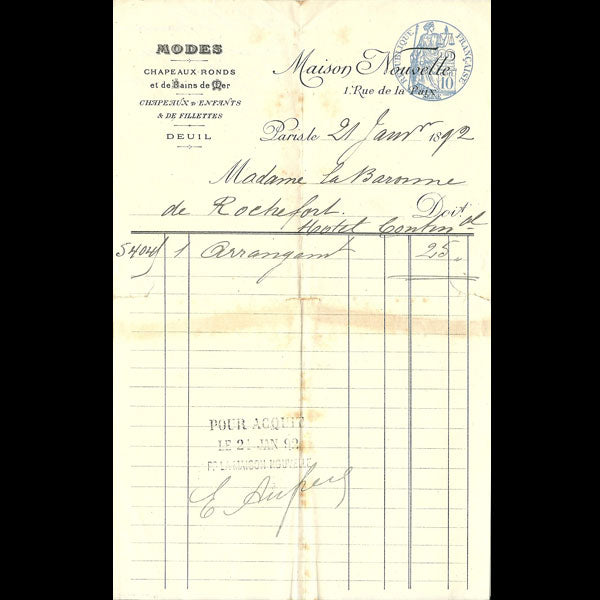 MODES
CHAPEAUX RONDS
et de Bains de Mer
CHAPEAUX D'ENFANTS
& DE FILLETTES
DEUIL
Maison Nouvelle
1. Rue de la Paix
RÉPUBLIQUE FRANÇAISE
10
Paris le 21 Janvr 1892
Madame la Baronne
de Rochefort. Doit
Hotel Continal
5404 1 Arrangant 25 "
POUR ACQUIT
LE 21 JAN 92
Pr LA MAISON NOUVELLE
E